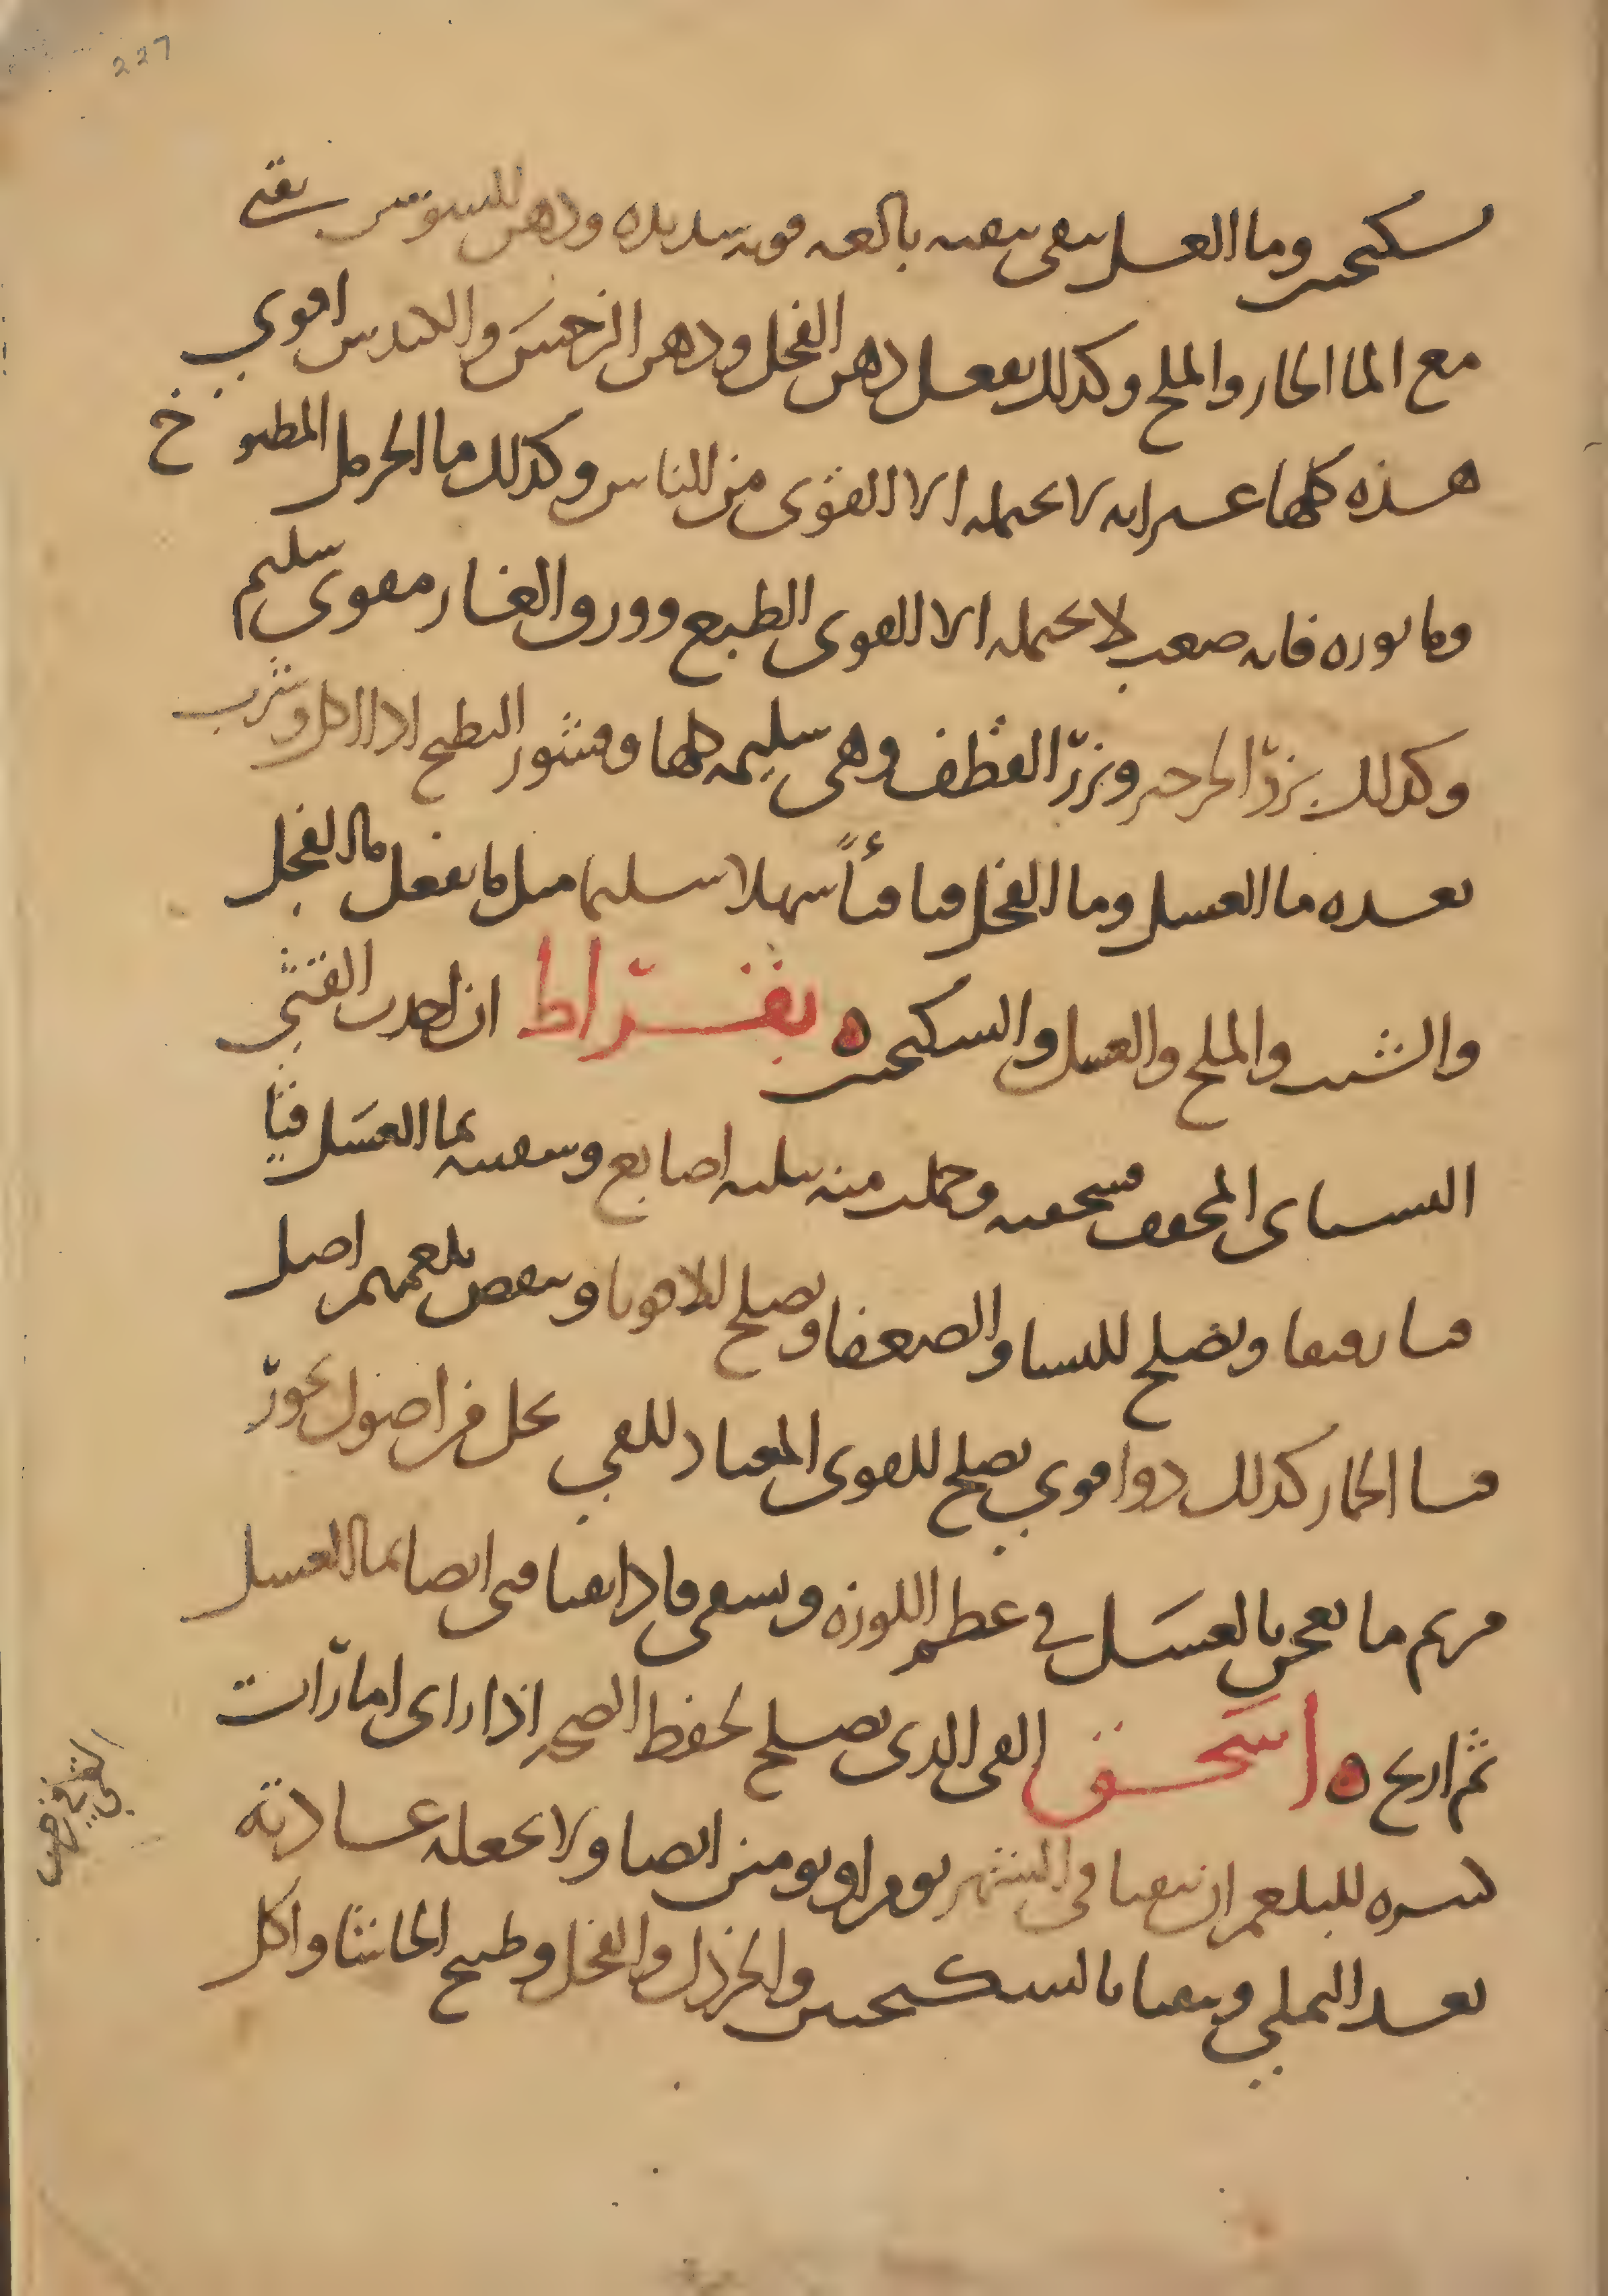 227
سكنجبين وما العسل ينقي تنقيه بالغه قويه شديده ودهن السوسن يقيي
مع الما الحار والملح وكذلك يفعل دهن الفجل ودهن النرجس والكندس اقوي
هذه كلها غير انه لا يحتمله الا القوى من الناس وكذلك ما الحرمل المطبوخ
وما نوره فانه صعب لا يحتمله الا القوى الطبع وورق الغار مقوى سليم
وكذلك بزر الجرجير وبزر القطف وهى سليمه كلها وقشور البطيخ اذا اكل وشرب
بعده ما العسل وما الفجل قيا قيأً سهلا سليما مثل ما يفعل ما الفجل
والشبت والملح والعسل والسكنجبين ه بقراط ان اخذت القثى
البستانى المجفف فسحقته وحملت منه بثلثه اصابع وسقيته بما العسل قيا
قيا رقيقا ويصلح للنسا والضعفا ويصلح للاقويا وينقص بلغمهم اصل
قثا الحمار كذلك دوا قوي يصلح للقوى المعتاد للقي يحل من اصول بخور
مريم ما يعجن بالعسل في عظم اللوزه ويسقى فاذا تقيا قى ايضا بما العسل
ثم اريح ه اسحق القى الذى يصلح لحفظ الصحه اذا راى امارات
كثره للبلغم ان يتقيا في الشهر يوم او يومين ايضا ولا يجعله عادته
بعد التملي ويتقيا بالسكنجبين والخردل والفجل وطبيخ الحاشا واكل
القي في